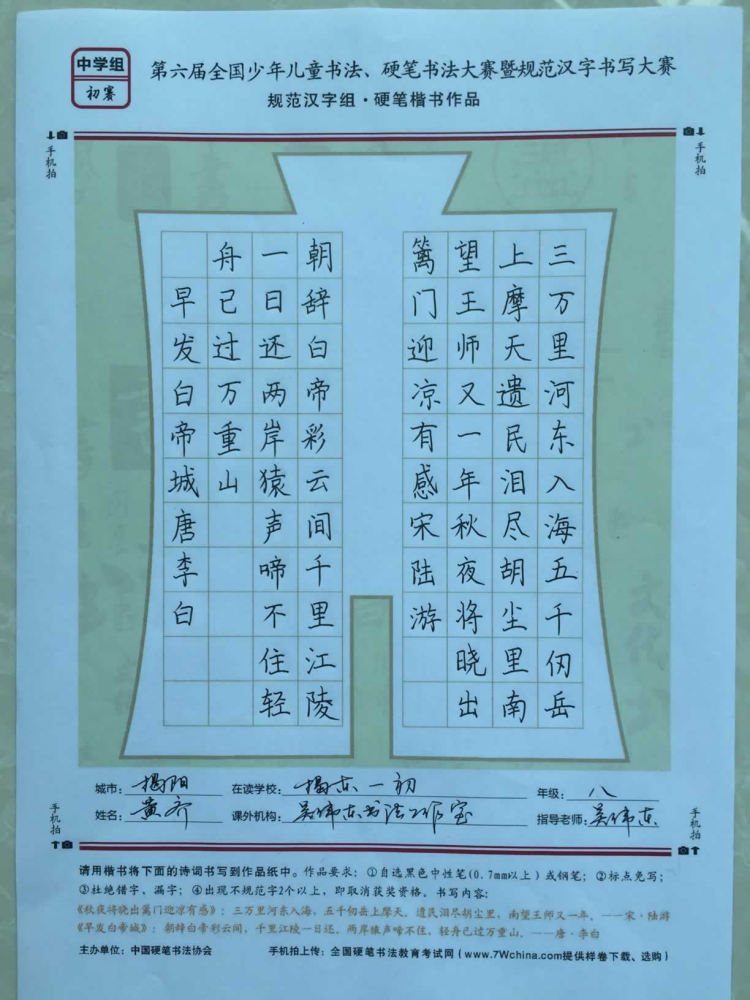 中学组
初赛
第六届全国少年儿童书法、硬笔书法大赛暨规范汉字书写大赛
规范汉字组·硬笔楷书作品
手机拍
手机拍
三万里河东入海五千仞岳
上摩天遗民泪尽胡尘里南
望王师又一年秋夜将晓出
篱门迎凉有感宋陆游
朝辞白帝彩云间千里江陵
一日还两岸猿声啼不住轻
舟已过万重山
早发白帝城唐李白
城市：揭阳 在读学校：揭东一初 年级：八
姓名：黄齐 课外机构：吴伟东书法工作室 指导老师：吴伟东
手机拍
手机拍
请用楷书将下面的诗词书写到作品纸中。作品要求：①自选黑色中性笔(0.7mm以上)或钢笔；②标点免写；
③杜绝错字、漏字；④出现不规范字2个以上，即取消获奖资格。书写内容：
《秋夜将晓出篱门迎凉有感》：三万里河东入海，五千仞岳上摩天。遗民泪尽胡尘里，南望王师又一年。——宋·陆游
《早发白帝城》：朝辞白帝彩云间，千里江陵一日还。两岸猿声啼不住，轻舟已过万重山。——唐·李白
主办单位：中国硬笔书法协会 手机拍上传：全国硬笔书法教育考试网（www.7Wchina.com提供样卷下载、选购）